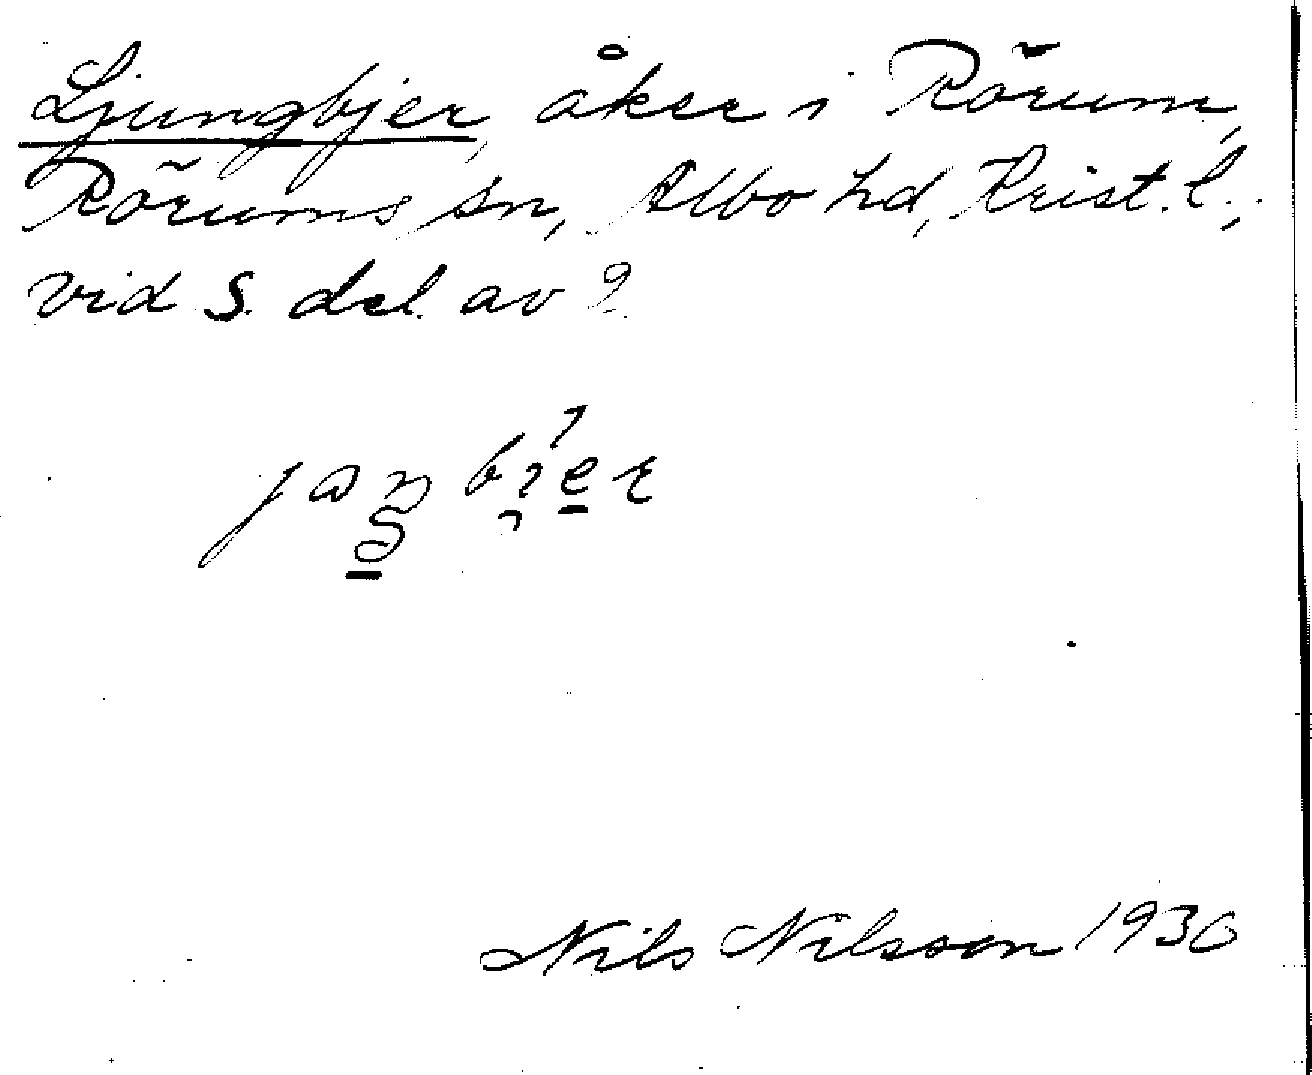 Ljungbjer, åker i Rörum,
Rörums sn, Albo hd, Krist. l.,
vid S. del. av ?
Nils Nilsson 1930